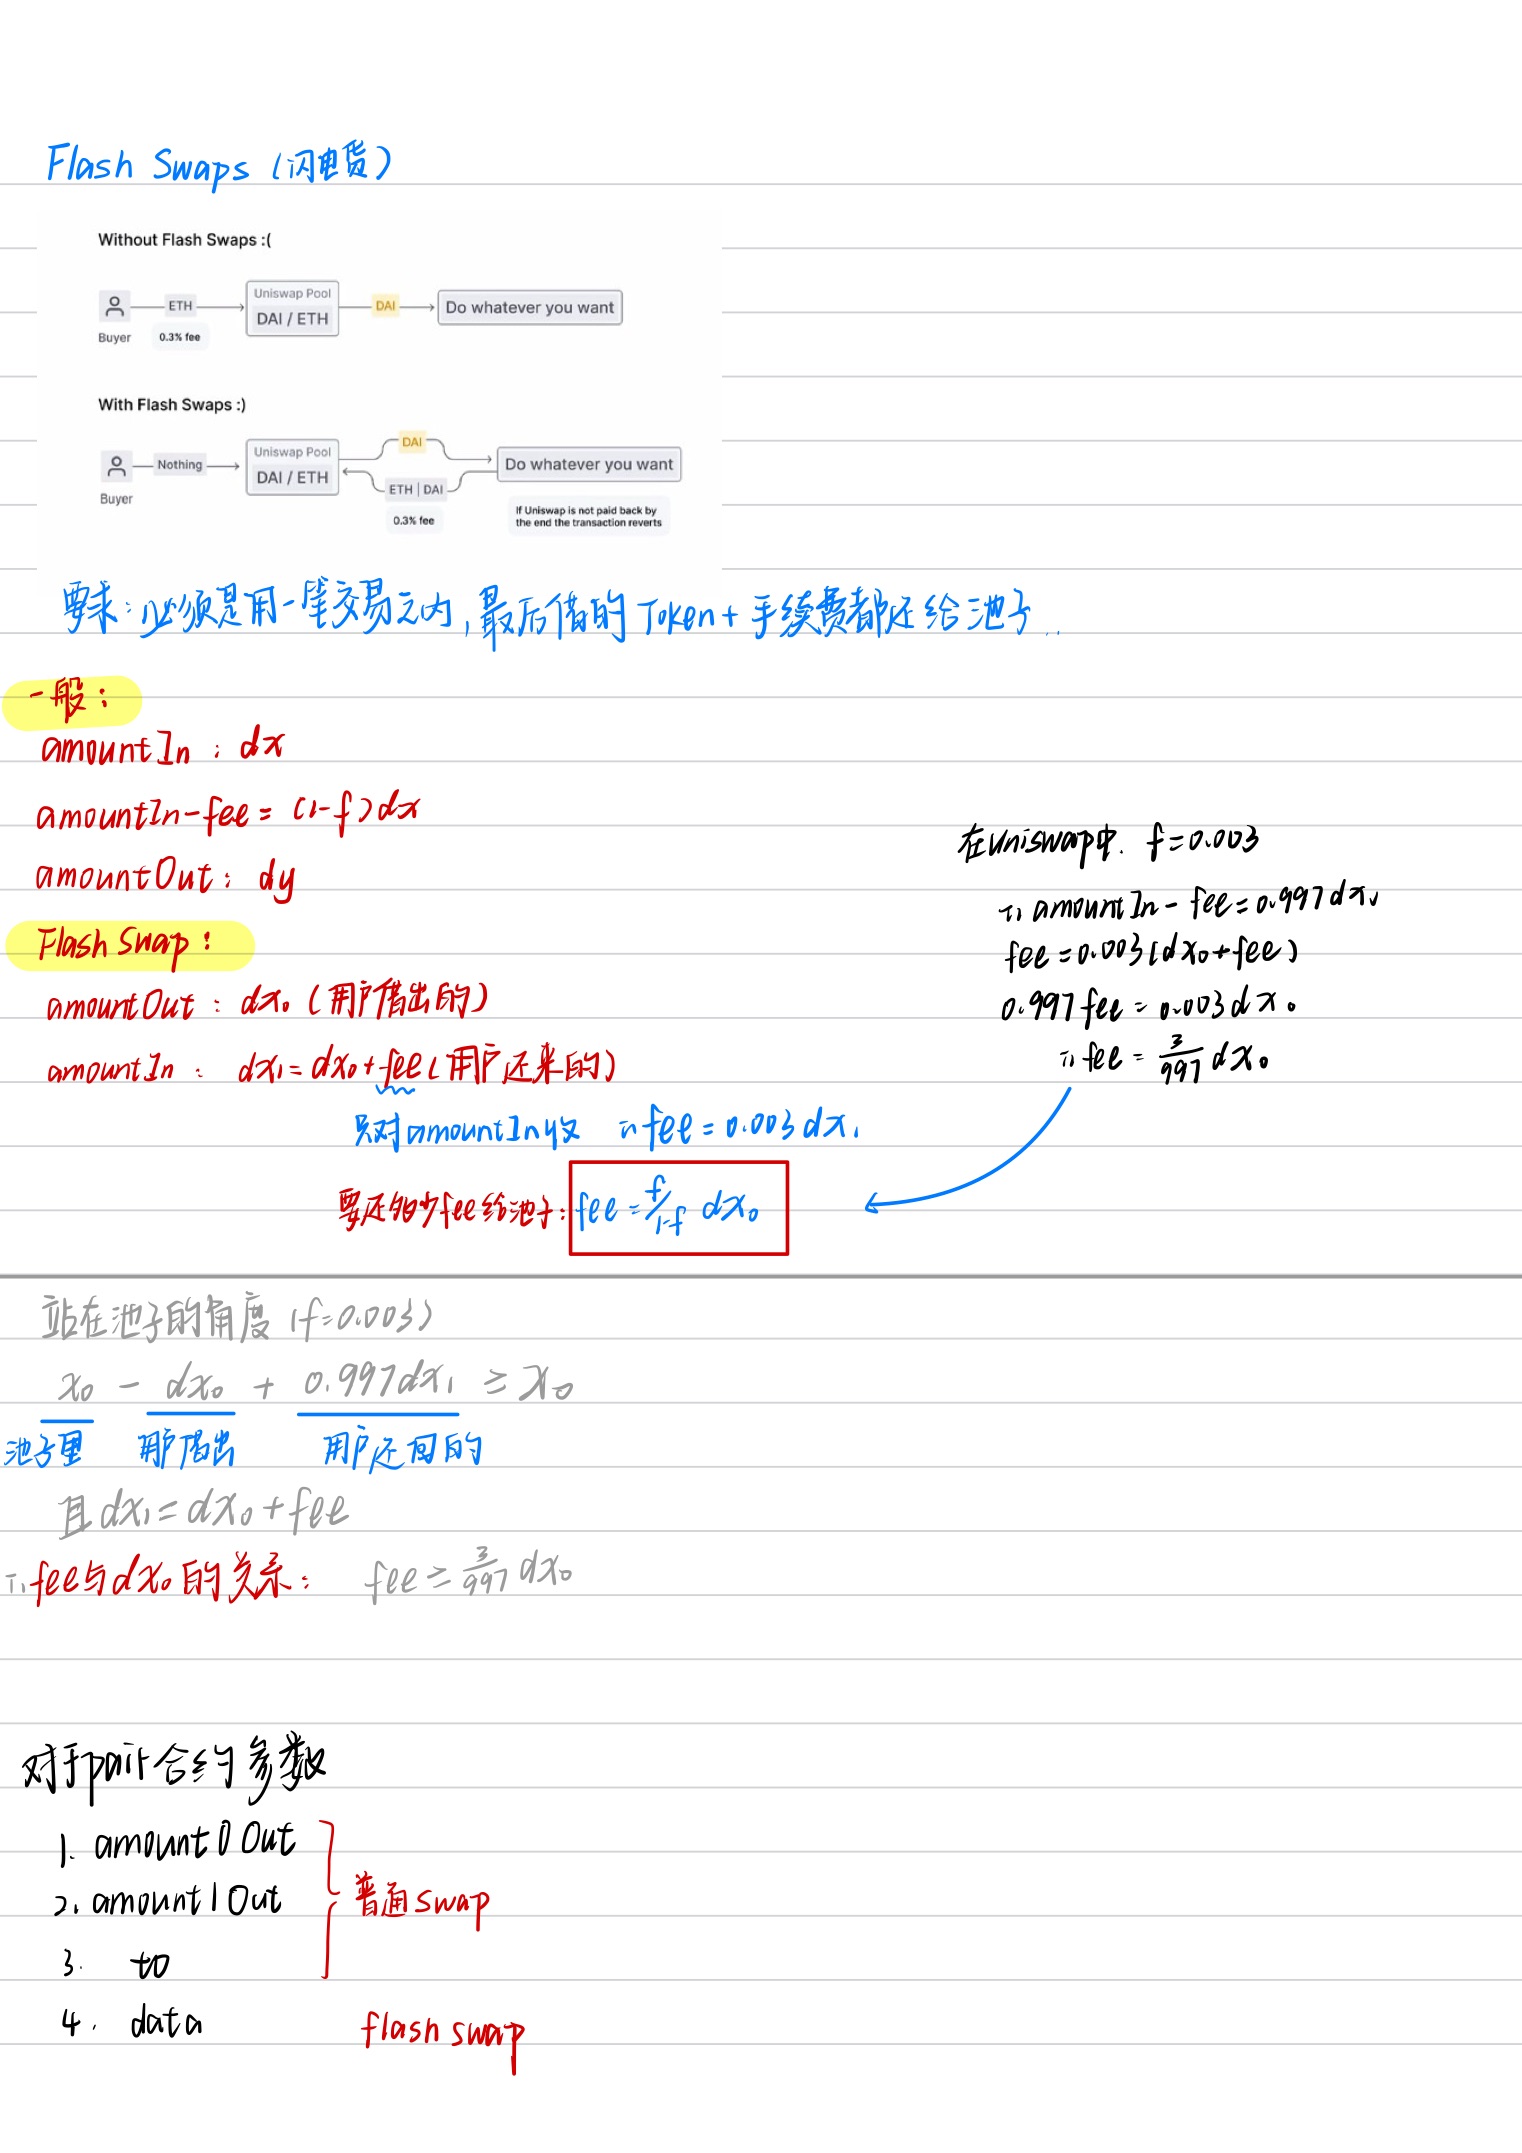 Flash Swaps (闪电贷)
Without Flash Swaps :(
Buyer
ETH
0.3% fee
Uniswap Pool
DAI / ETH
DAI
Do whatever you want
With Flash Swaps :)
Buyer
Nothing
Uniswap Pool
DAI / ETH
DAI
ETH | DAI
0.3% fee
Do whatever you want
If Uniswap is not paid back by
the end the transaction reverts
要求:必须是用一笔交易之内,最后借的Token+手续费都还给池子..
一般:
amountIn : dx
amountIn-fee = (1-f)dx
amountOut: dy
Flash Swap:
amountOut : dx₀ (用户借出的)
amountIn : dx₁=dx₀+fee(用户还来的)
只对amountIn收 ∴fee=0.003dx₁
要还多少fee给池子: fee=f/1-f dx₀
在Uniswap中. f=0.003
∴ amountIn-fee=0.997dx₁
fee=0.003(dx₀+fee)
0.997fee=0.003dx₀
∴fee=3/997 dx₀
站在池子的角度(f=0.003)
x₀ - dx₀ + 0.997dx₁ ≥ x₀
池子里 用户借出 用户还回的
且dx₁=dx₀+fee
∴fee与dx₀的关系: fee ≥ 3/997 dx₀
对于pair合约参数
1. amount0Out
2. amount1Out
普通swap
3. to
4. data flash swap